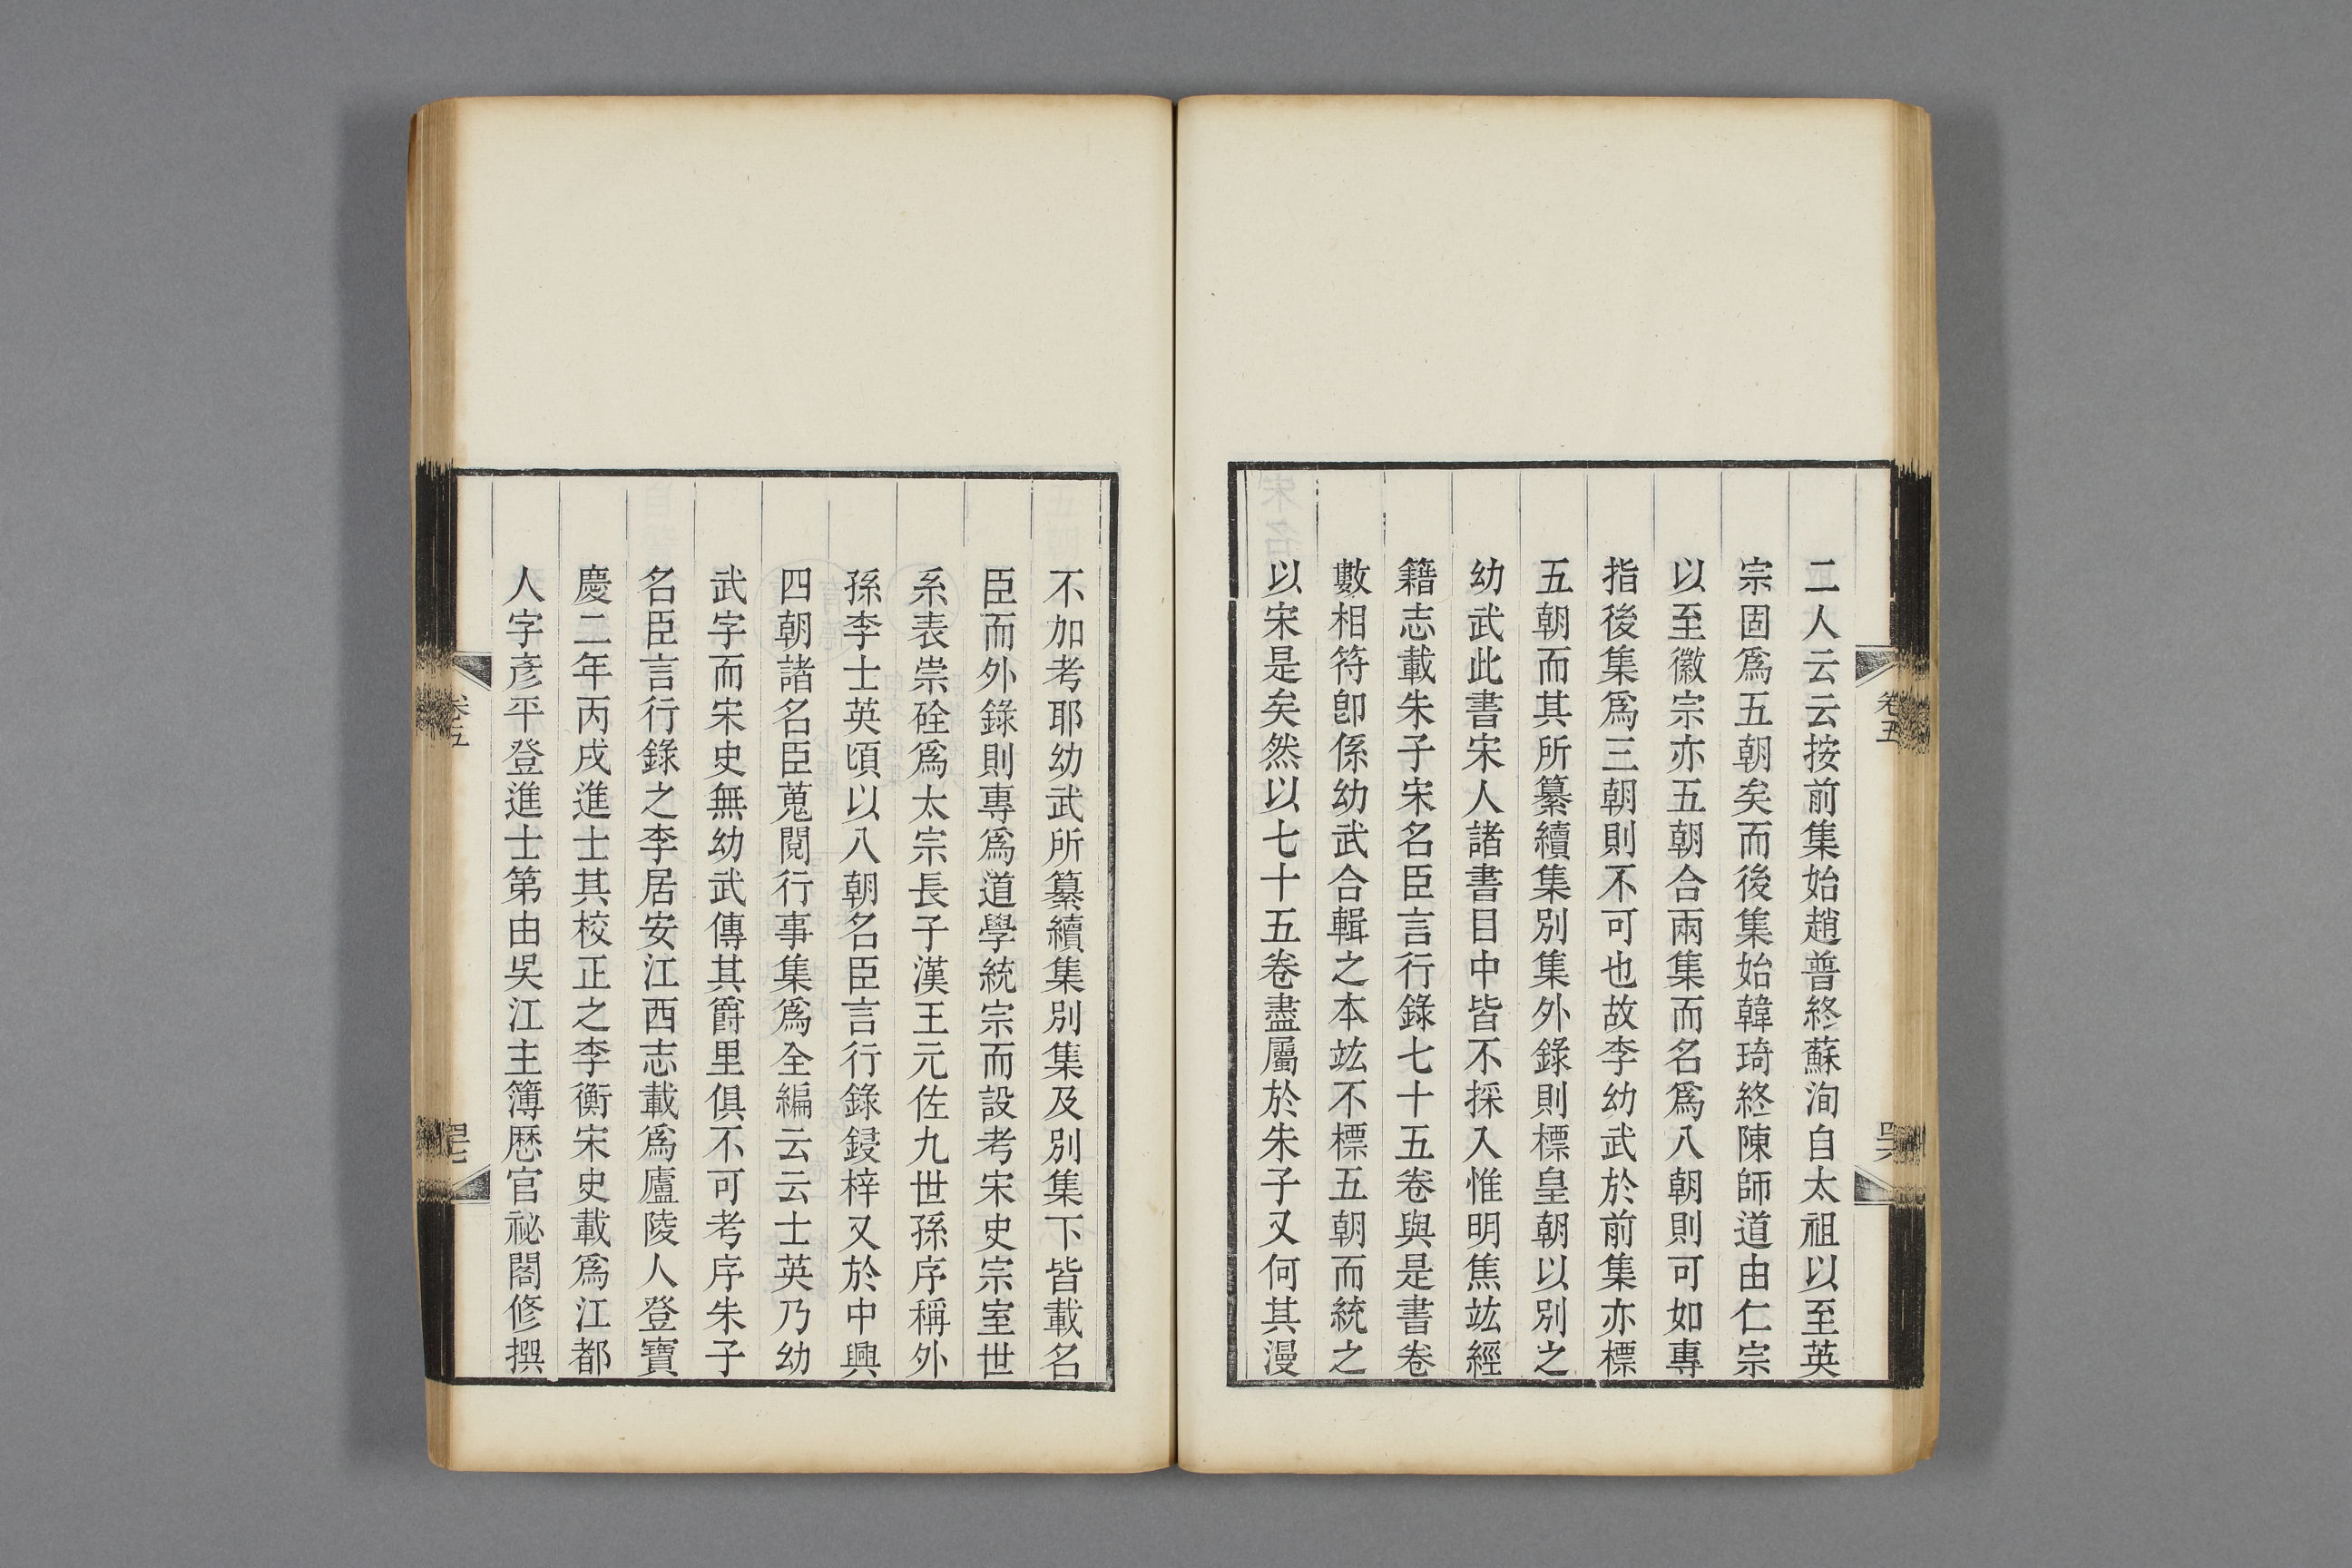 二人云云按前集始趙普終蘇洵自太祖以至英
宗固爲五朝矣而後集始韓琦終陳師道由仁宗
以至徽宗亦五朝合兩集而名爲八朝則可如專
指後集爲三朝則不可也故李幼武於前集亦標
五朝而其所纂續集別集外錄則標皇朝以別之
幼武此書宋人諸書目中皆不採入惟明焦竑經
籍志載朱子宋名臣言行錄七十五卷與是書卷
數相符卽係幼武合輯之本竑不標五朝而統之
以宋是矣然以七十五卷盡屬於朱子又何其漫
不加考耶幼武所纂續集別集及別集下皆載名
臣而外錄則專爲道學統宗而設考宋史宗室世
系表崇硂爲太宗長子漢王元佐九世孫序稱外
孫李士英頃以八朝名臣言行錄鋟梓又於中興
四朝諸名臣蒐閱行事集爲全編云云士英乃幼
武字而宋史無幼武傳其爵里俱不可考序朱子
名臣言行錄之李居安江西志載爲廬陵人登寶
慶二年丙戌進士其校正之李衡宋史載爲江都
人字彥平登進士第由吳江主簿歷官祕閣修撰
卷五